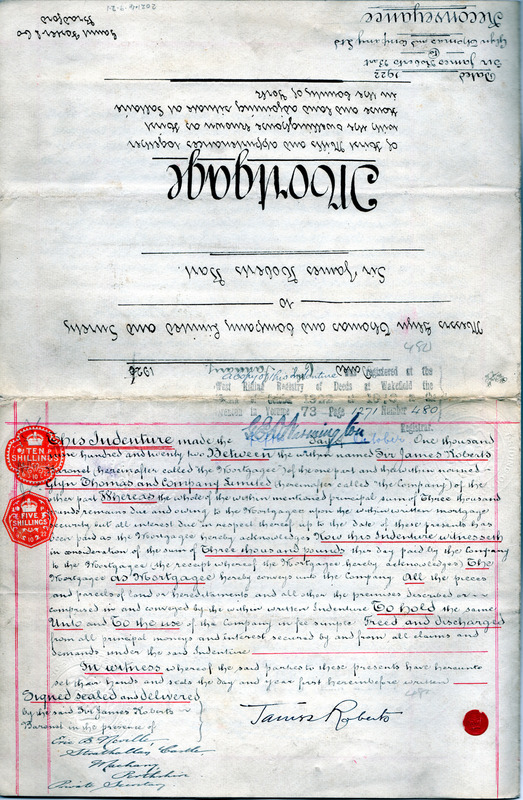 2021-6-7-2-1
Saml Fowler & Co
Bradford
Dated 1922
Sir James Roberts Bart
to
Glyn Thomas and Company Ltd
Reconveyance
Dated 192
January
Messrs Glyn Thomas and Company Limited and Surety
to
Sir James Roberts Bart.
Mortgage
of Hirst Mills and appurtenances together
with the dwellinghouse known as Hirst
House and land adjoining situate at Saltaire
in the County of York
480
A copy of this Indenture Registered at the
West Riding Registry of Deeds at Wakefield the
1922 at
in Volume 73 Page 1271 Number 480
Registrar.
TEN
SHILLINGS
FIVE
SHILLINGS
This Indenture made the day October One thousand
nine hundred and twenty two Between the within named Sir James Roberts
Baronet (hereinafter called the Mortgagee) of the one part and the within named
Glyn Thomas and Company Limited (hereinafter called the Company) of the
other part Whereas the whole of the within mentioned principal sum of Three thousand
pounds remains due and owing to the Mortgagee upon the within written mortgage
security but all interest due in respect thereof up to the date of these presents has
been paid as the Mortgagee hereby acknowledges Now this Indenture witnesseth
in consideration of the sum of Three thousand pounds this day paid by the Company
to the Mortgagee (the receipt whereof the Mortgagee hereby acknowledges) The
Mortgagee as Mortgagee hereby conveys unto the Company All the pieces
and parcels of land or hereditaments and all other the premises described or
comprised in and conveyed by the within written Indenture To hold the same
Unto and To the use of the Company in fee simple Freed and discharged
from all principal moneys and interest secured by and from all claims and
demands under the said Indenture
In witness whereof the said parties to these presents have hereunto
set their hands and seals the day and year first hereinbefore written
Signed sealed and delivered
by the said Sir James Roberts
Baronet in the presence of
James Roberts
Eric B Nevitte
Strathallan Castle
Machany
Perthshire
Private Secretary